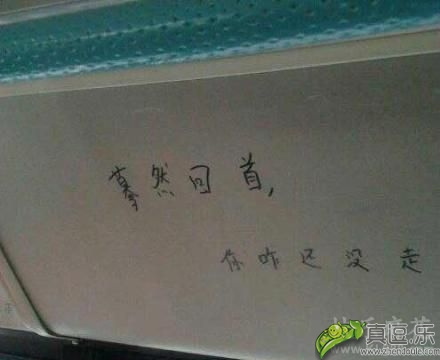 蓦然回首,
你咋还没走
真逗乐
www.zhendoule.com